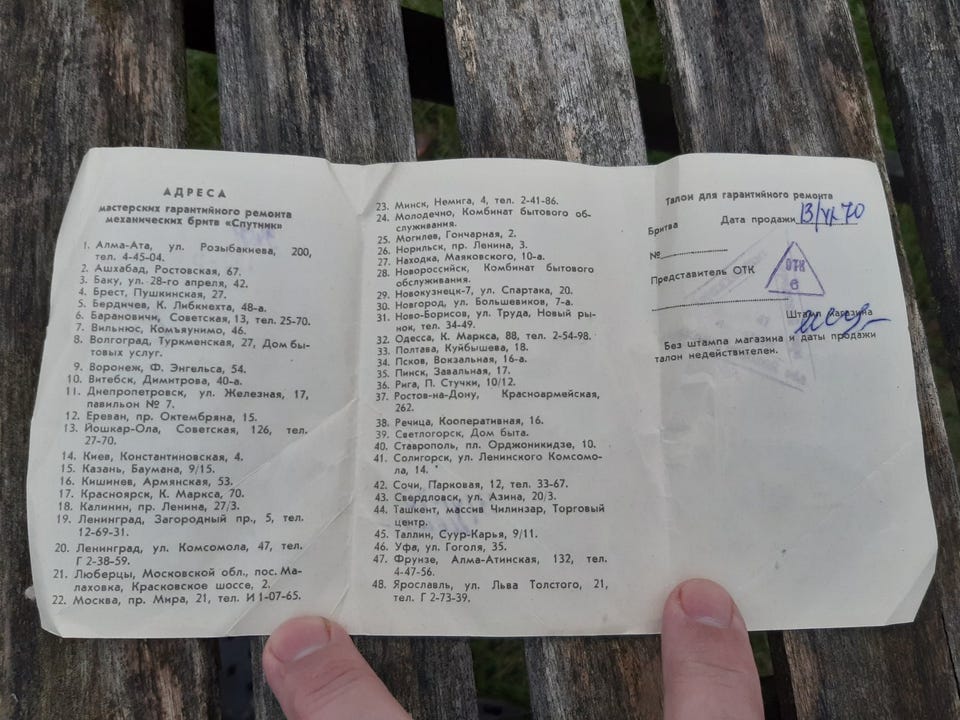 АДРЕСА
мастерских гарантийного ремонта
механических бритв «Спутник»
1. Алма-Ата, ул. Розыбакиева, 200,
тел. 4-45-04.
2. Ашхабад, Ростовская, 67.
3. Баку, ул. 28-го апреля, 42.
4. Брест, Пушкинская, 27.
5. Бердичев, К. Либкнехта, 48-а.
6. Барановичи, Советская, 13, тел. 25-70.
7. Вильнюс, Комъяунимо, 46.
8. Волгоград, Туркменская, 27, Дом бы-
товых услуг.
9. Воронеж, Ф. Энгельса, 54.
10. Витебск, Димитрова, 40-а.
11. Днепропетровск, ул. Железная, 17,
павильон № 7.
12. Ереван, пр. Октембряна, 15.
13. Йошкар-Ола, Советская, 126, тел.
27-70.
14. Киев, Константиновская, 4.
15. Казань, Баумана, 9/15.
16. Кишинев, Армянская, 53.
17. Красноярск, К. Маркса, 70.
18. Калинин, пр. Ленина, 27/3.
19. Ленинград, Загородный пр., 5, тел.
12-69-31.
20. Ленинград, ул. Комсомола, 47, тел.
Г 2-38-59.
21. Люберцы, Московской обл., пос. Ма-
лаховка, Красковское шоссе, 2.
22. Москва, пр. Мира, 21, тел. И 1-07-65.
23. Минск, Немига, 4, тел. 2-41-86.
24. Молодечно, Комбинат бытового об-
служивания.
25. Могилев, Гончарная, 2.
26. Норильск, пр. Ленина, 3.
27. Находка, Маяковского, 10-а.
28. Новороссийск, Комбинат бытового
обслуживания.
29. Новокузнецк-7, ул. Спартака, 20.
30. Новгород, ул. Большевиков, 7-а.
31. Ново-Борисов, ул. Труда, Новый ры-
нок, тел. 34-49.
32. Одесса, К. Маркса, 88, тел. 2-54-98.
33. Полтава, Куйбышева, 18.
34. Псков, Вокзальная, 16-а.
35. Пинск, Завальная, 17.
36. Рига, П. Стучки, 10/12.
37. Ростов-на-Дону, Красноармейская,
262.
38. Речица, Кооперативная, 16.
39. Светлогорск, Дом быта.
40. Ставрополь, пл. Орджоникидзе, 10.
41. Солигорск, ул. Ленинского Комсомо-
ла, 14.
42. Сочи, Парковая, 12, тел. 33-67.
43. Свердловск, ул. Азина, 20/3.
44. Ташкент, массив Чилинзар, Торговый
центр.
45. Таллин, Суур-Карья, 9/11.
46. Уфа, ул. Гоголя, 35.
47. Фрунзе, Алма-Атинская, 132, тел.
4-47-56.
48. Ярославль, ул. Льва Толстого, 21,
тел. Г 2-73-39.
Талон для гарантийного ремонта
Бритва Дата продажи 13/VI 70
№
Представитель ОТК
ОТК
6
Штамп магазина
Без штампа магазина и даты продажи
талон недействителен.